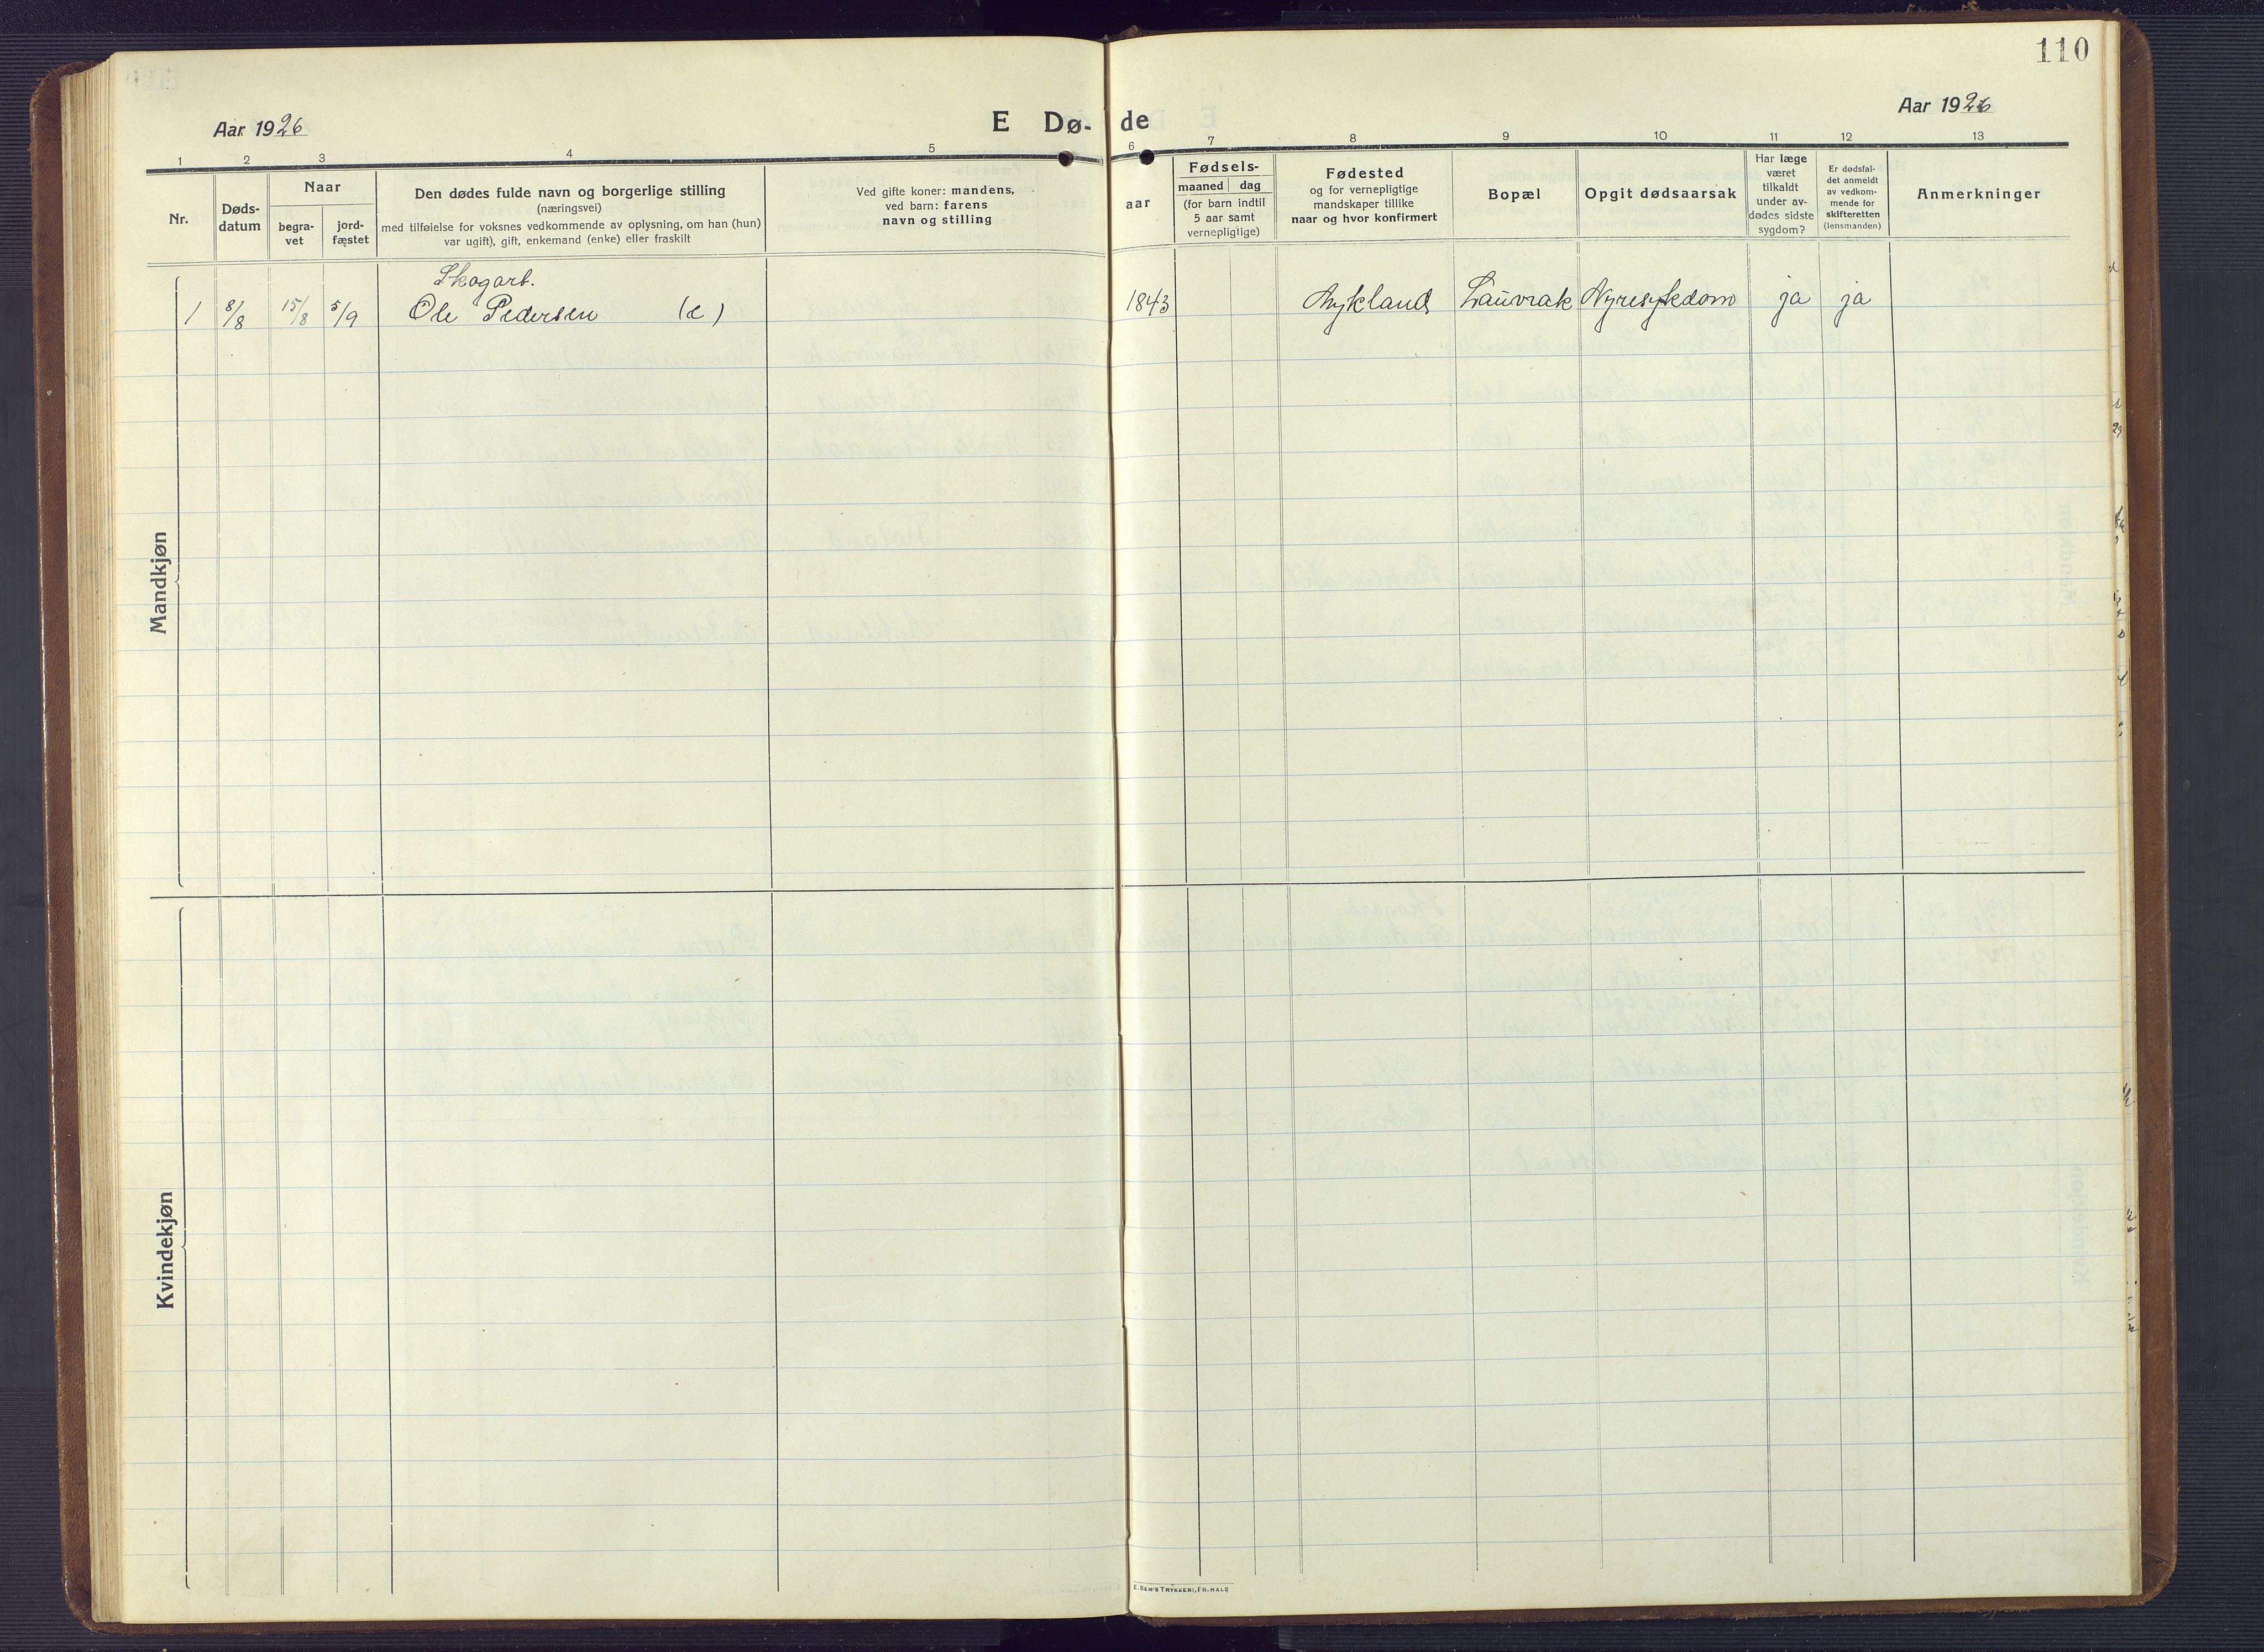 110
Aar 1926
E Dø-
de
Aar 1926
1 2 3 4 5 6 7 8 9 10 11 12 13
Nr.
Døds-
datum
Naar
begra-
vet
jord-
fæstet
Den dødes fulde navn og borgerlige stilling
(næringsvei)
med tilføielse for voksnes vedkommende av oplysning, om han (hun)
var ugift), gift, enkemand (enke) eller fraskilt
Ved gifte koner: mandens,
ved barn: farens
navn og stilling
aar
Fødsels-
maaned dag
(for barn indtil
5 aar samt
vernepligtige)
Fødested
og for vernepligtige
mandskaper tillike
naar og hvor konfirmert
Bopæl
Opgit dødsaarsak
Har læge
været
tilkaldt
under av-
dødes sidste
sygdom?
Er dødsfal-
det anmeldt
av vedkom-
mende for
skifteretten
(lensmanden)
Anmerkninger
Skogarb.
1 8/8 15/8 5/9 Ole Pedersen (e) 1843 Mykland Lauvrak Nyresykdom ja ja
Mandkjøn
Kvindekjøn
E. SEM'S TRYKKERI, FR.HALD